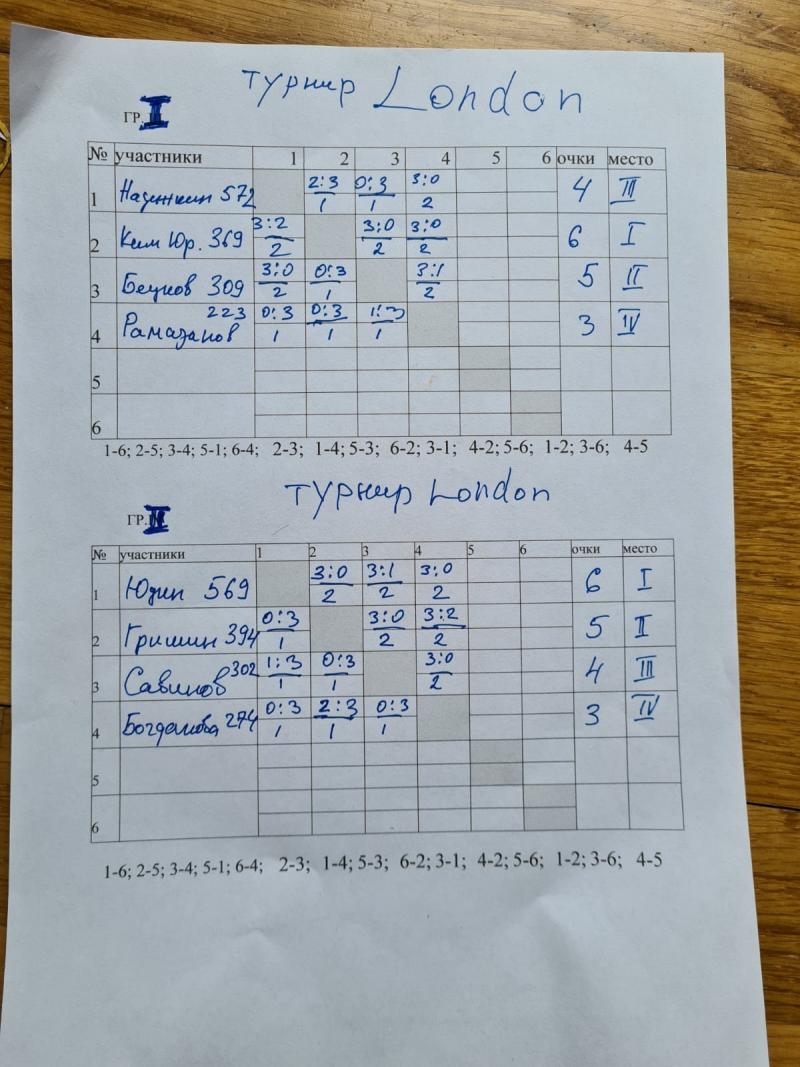 турнир London
ГР. II
№ участники 1 2 3 4 5 6 очки место
1 Надежкин 572 2:3 1 0:3 1 3:0 2 4 III
2 Ким Юр. 369 3:2 2 3:0 2 3:0 2 6 I
3 309 3:0 2 0:3 1 3:1 2 5 II
4 Рамазанов 223 0:3 1 0:3 1 1:3 1 3 IV
5
6
1-6; 2-5; 3-4; 5-1; 6-4; 2-3; 1-4; 5-3; 6-2; 3-1; 4-2; 5-6; 1-2; 3-6; 4-5
турнир London
ГР.
№ участники 1 2 3 4 5 6 очки место
1 Юдин 569 3:0 2 3:1 2 3:0 2 6 I
2 Гришин 394 0:3 1 3:0 2 3:2 2 5 II
3 Савинов 302 1:3 1 0:3 1 3:0 2 4 III
4 Богданова 274 0:3 1 2:3 1 0:3 1 3 IV
5
6
1-6; 2-5; 3-4; 5-1; 6-4; 2-3; 1-4; 5-3; 6-2; 3-1; 4-2; 5-6; 1-2; 3-6; 4-5